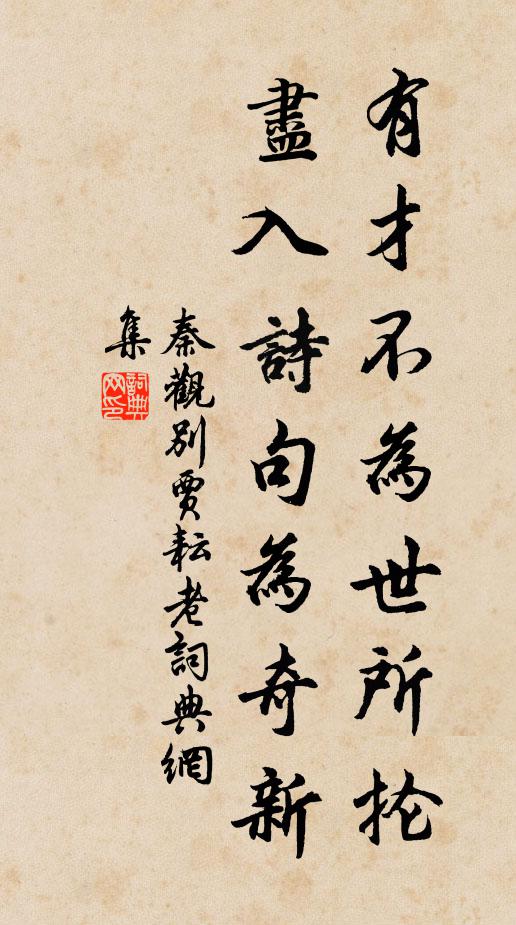 有才不為世所抡
盡入詩句為奇新
秦觀別賈耘老詞典網
集
詞典
网印